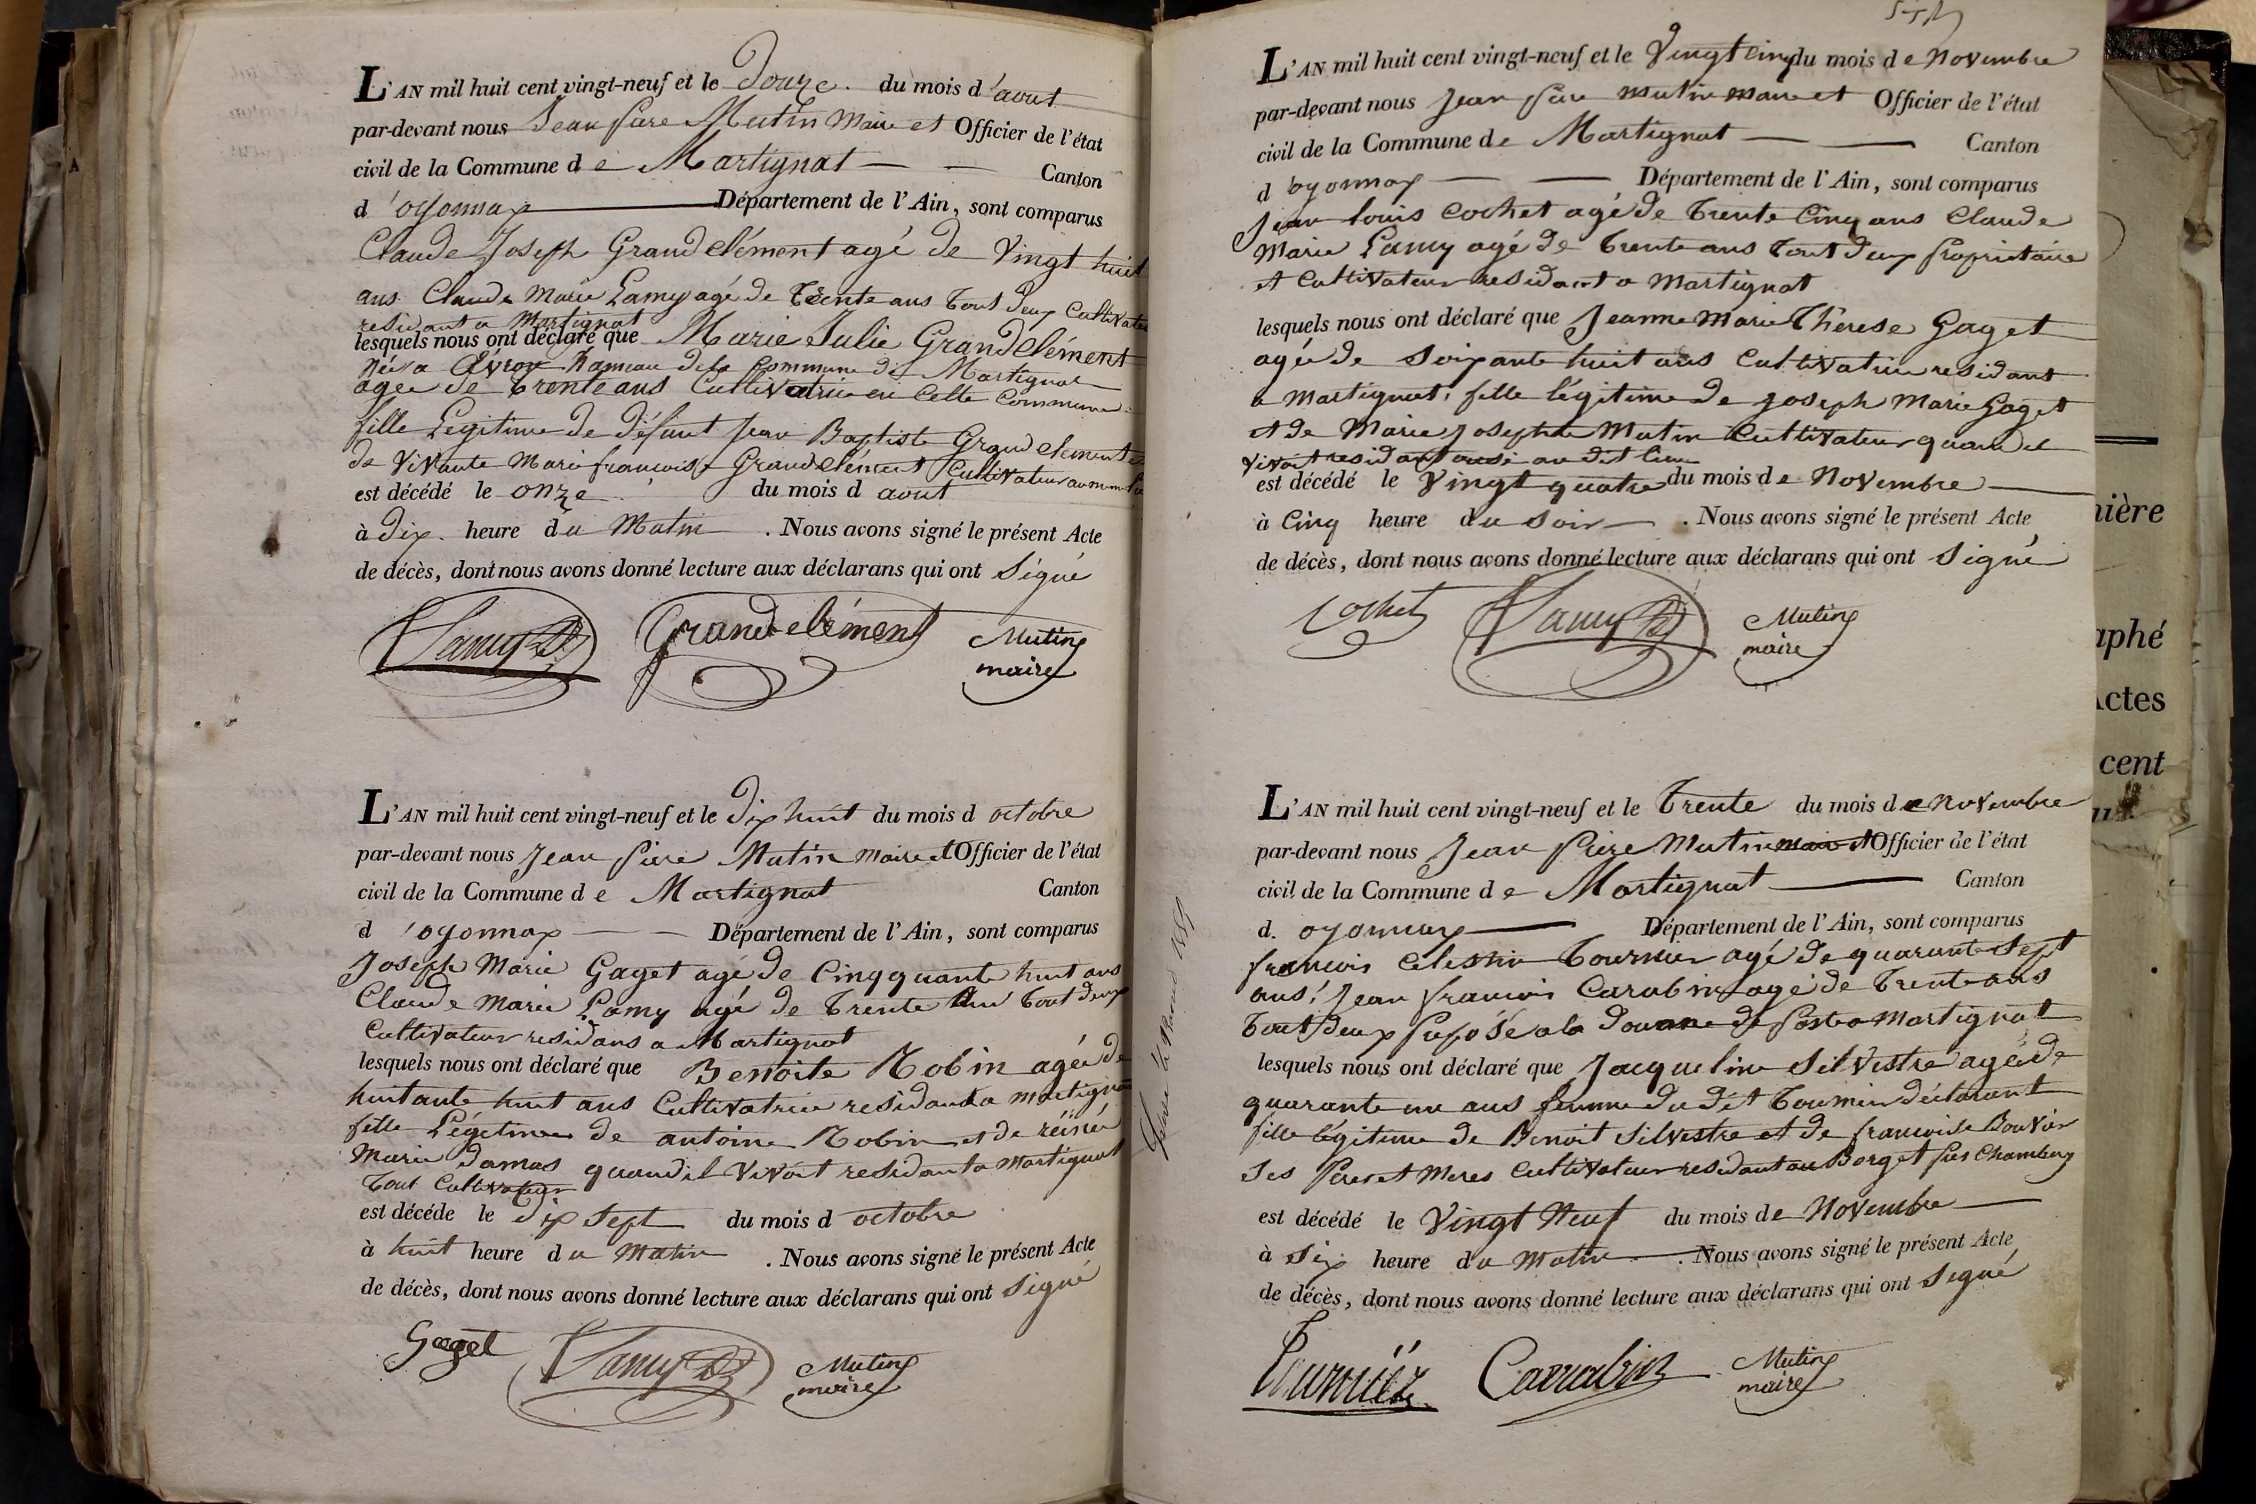 L'AN mil huit cent vingt-neuf et le Douze. du mois d'aout
par-devant nous Jean piere Mutin Maire et Officier de l'état
civil de la Commune de Martignat Canton
d'oyonnax Département de l'Ain, sont comparus
Claude Joseph Grandclément agé de Vingt huit
ans Claude Marie Lamy agé de Trente ans Tout deux Cultivateur
residant a Martignat
lesquels nous ont déclaré que Marie Julie Grandclément
Née a Évron Hameau de la Commune de Martignat
agée de Trente ans Cultivatrice en Cette Commune
fille Legitime de défunt Jean Baptiste Grandclement et
de Vivante Marie françoise Grandclément Cultivateur au meme lieu
est décédé le onze du mois d aout
à dix heure du Matin . Nous avons signé le présent Acte
de décès, dont nous avons donné lecture aux déclarans qui ont Signé
Lamy Grandclément Mutin
maire
L'AN mil huit cent vingt-neuf et le Dix huit du mois d octobre
par-devant nous Jean piere Mutin Maire et Officier de l'état
civil de la Commune de Martignat Canton
d'oyonnax Département de l'Ain, sont comparus
Joseph Marie Gaget agé de Cinqquante huit ans
Claude Marie Lamy agé de Trente ans Tout deux
Cultivateur residans a Martignat
lesquels nous ont déclaré que Benoite Robin agée de
huitante huit ans Cultivatrice residant a Martignat
fille Légitime de antoine Robin et de
Marie Damas quand il Vivoit residant a Martignat
Tout Cultivateur
est décéde le dix Sept du mois d octobre
à huit heure du Matin . Nous avons signé le présent Acte
de décès, dont nous avons donné lecture aux déclarans qui ont Signé
Gaget Lamy Mutin
maire
L'AN mil huit cent vingt-neuf et le Vingt Cinq du mois de Novembre
par-devant nous Jean piere Mutin Maire et Officier de l'état
civil de la Commune de Martignat Canton
d'oyonnax Département de l'Ain, sont comparus
Jean Louis Cochet agé de Trente Cinq ans Claude
Marie Lamy agé de Trente ans Tout deux propriétaire
et Cultivateur residant a Martignat
lesquels nous ont déclaré que Jeanne Marie Thérese Gaget
agée de Soixante huit ans Cultivatrice residant
a Martignat, fille légitime de Joseph Marie Gaget
et de Marie Josephte Mutin Cultivateur quand il
Vivoit residant ausi au dit lieu
est décédé le Vingt quatre du mois de Novembre
à Cinq heure du Soir . Nous avons signé le présent Acte
de décès, dont nous avons donné lecture aux déclarans qui ont Signé
Cochet Lamy Mutin
maire
L'AN mil huit cent vingt-neuf et le Trente du mois de Novembre
par-devant nous Jean piere Mutin maire et Officier de l'état
civil de la Commune de Martignat Canton
d. oyonnax Département de l'Ain, sont comparus
francois Celestin Tournier agé de quarante Sept
ans, Jean francois Carabin agé de Trente ans
Tout deux préposé a la douane de poste a Martignat
lesquels nous ont déclaré que Jacqueline Silvestre agée de
quarante un ans femme du dit Tournier déclarant
fille légitime de Benoit Silvestre et de francoise Bouvier
Ses Peres et Meres Cultivateur residant au Borget pres Chambery
est décédé le Vingt Neuf du mois de Novembre
à Six heure du Matin . Nous avons signé le présent Acte
de décès, dont nous avons donné lecture aux déclarans qui ont Signé
Tournier Carrabin Mutin
maire
nière
aphé
Actes
cent